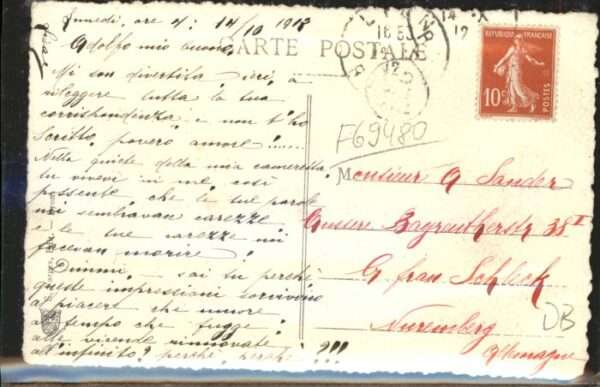 Lunedì, ore 4: 14/10 1912
Adolfo mio buono.
CARTE POSTALE
Mi son divertita ieri, a
rileggere tutta la tua
corrispondenza e non t'ho
Scritto, povero amore......
Nella quiete della mia cameretta
tu vivevi in me, così
possente, che le tue parole
mi sembravan carezze
e le tue carezze mi
facevan morire.
Dimmi, sai tu perchè
queste impressioni sorvivono
al piacere che muore
al tempo che fugge
alle vicende rinnovate
all'infinito? perchè, perchè?!!!
14 X
12
REPUBLIQUE FRANÇAISE
10c
POSTES
F69480
Monsieur A Sander
Aeussere Bayreutherstr 38 II
A fran Schleck
Nuremberg
Allemagne
DB